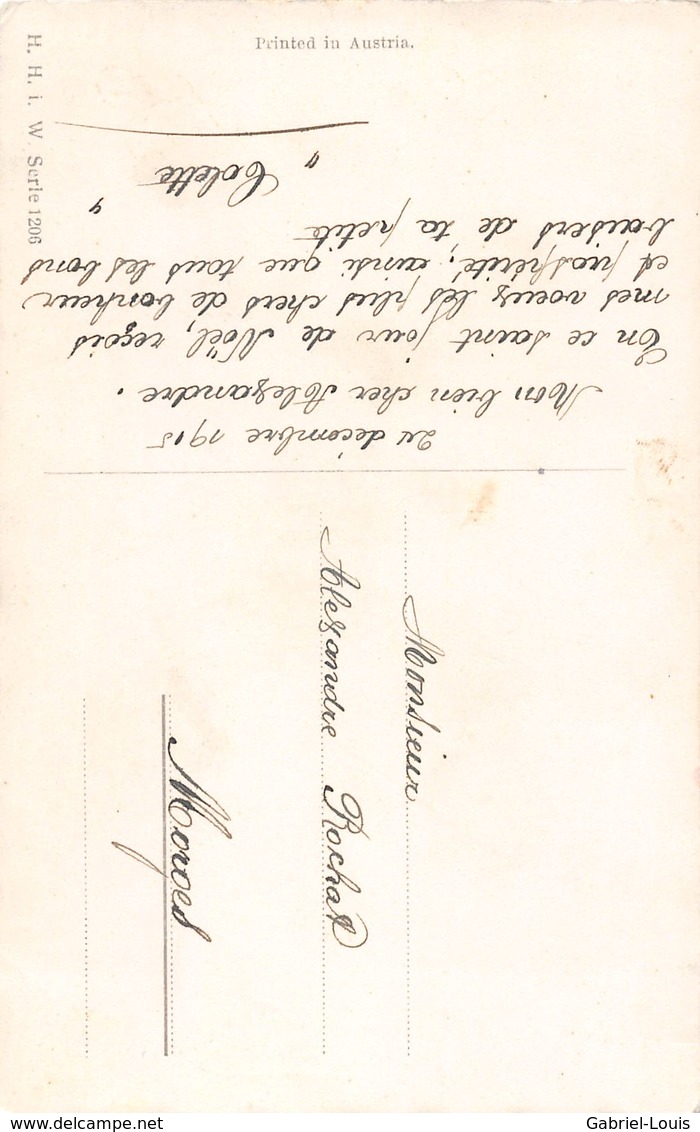 Printed in Austria.
H. H. i. W. Serie 1206
24 décembre 1915
Mon bien cher Alexandre.
En ce saint jour de Noël, reçois
mes voeux les plus chers de bonheur
et prospérité, ainsi que tous les bons
baisers de ta petite
" Colette "
Monsieur
Alexandre Rochat
Morges
www.delcampe.net
Gabriel-Louis